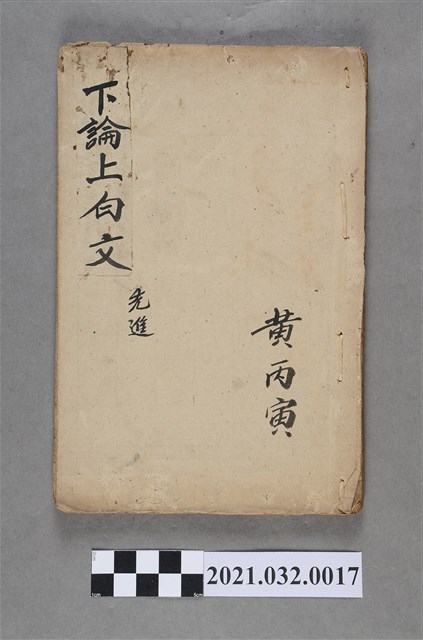 下論上白文
先進
黃丙寅
2021.032.0017